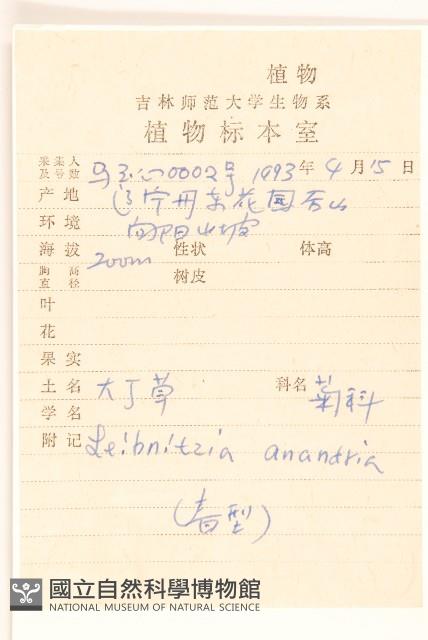 植物
吉林师范大学生物系
植物标本室
采集人及号数 马玉心0002号 1993年4月15日
产地 辽宁丹东花园后山
环境 向阳山坡
海拔 200m 性状 体高
胸高直径 树皮
叶
花
果实
土名 大丁草 科名 菊科
学名
附记 Leibnitzia anandria
(春型)
國立自然科學博物館
NATIONAL MUSEUM OF NATURAL SCIENCE